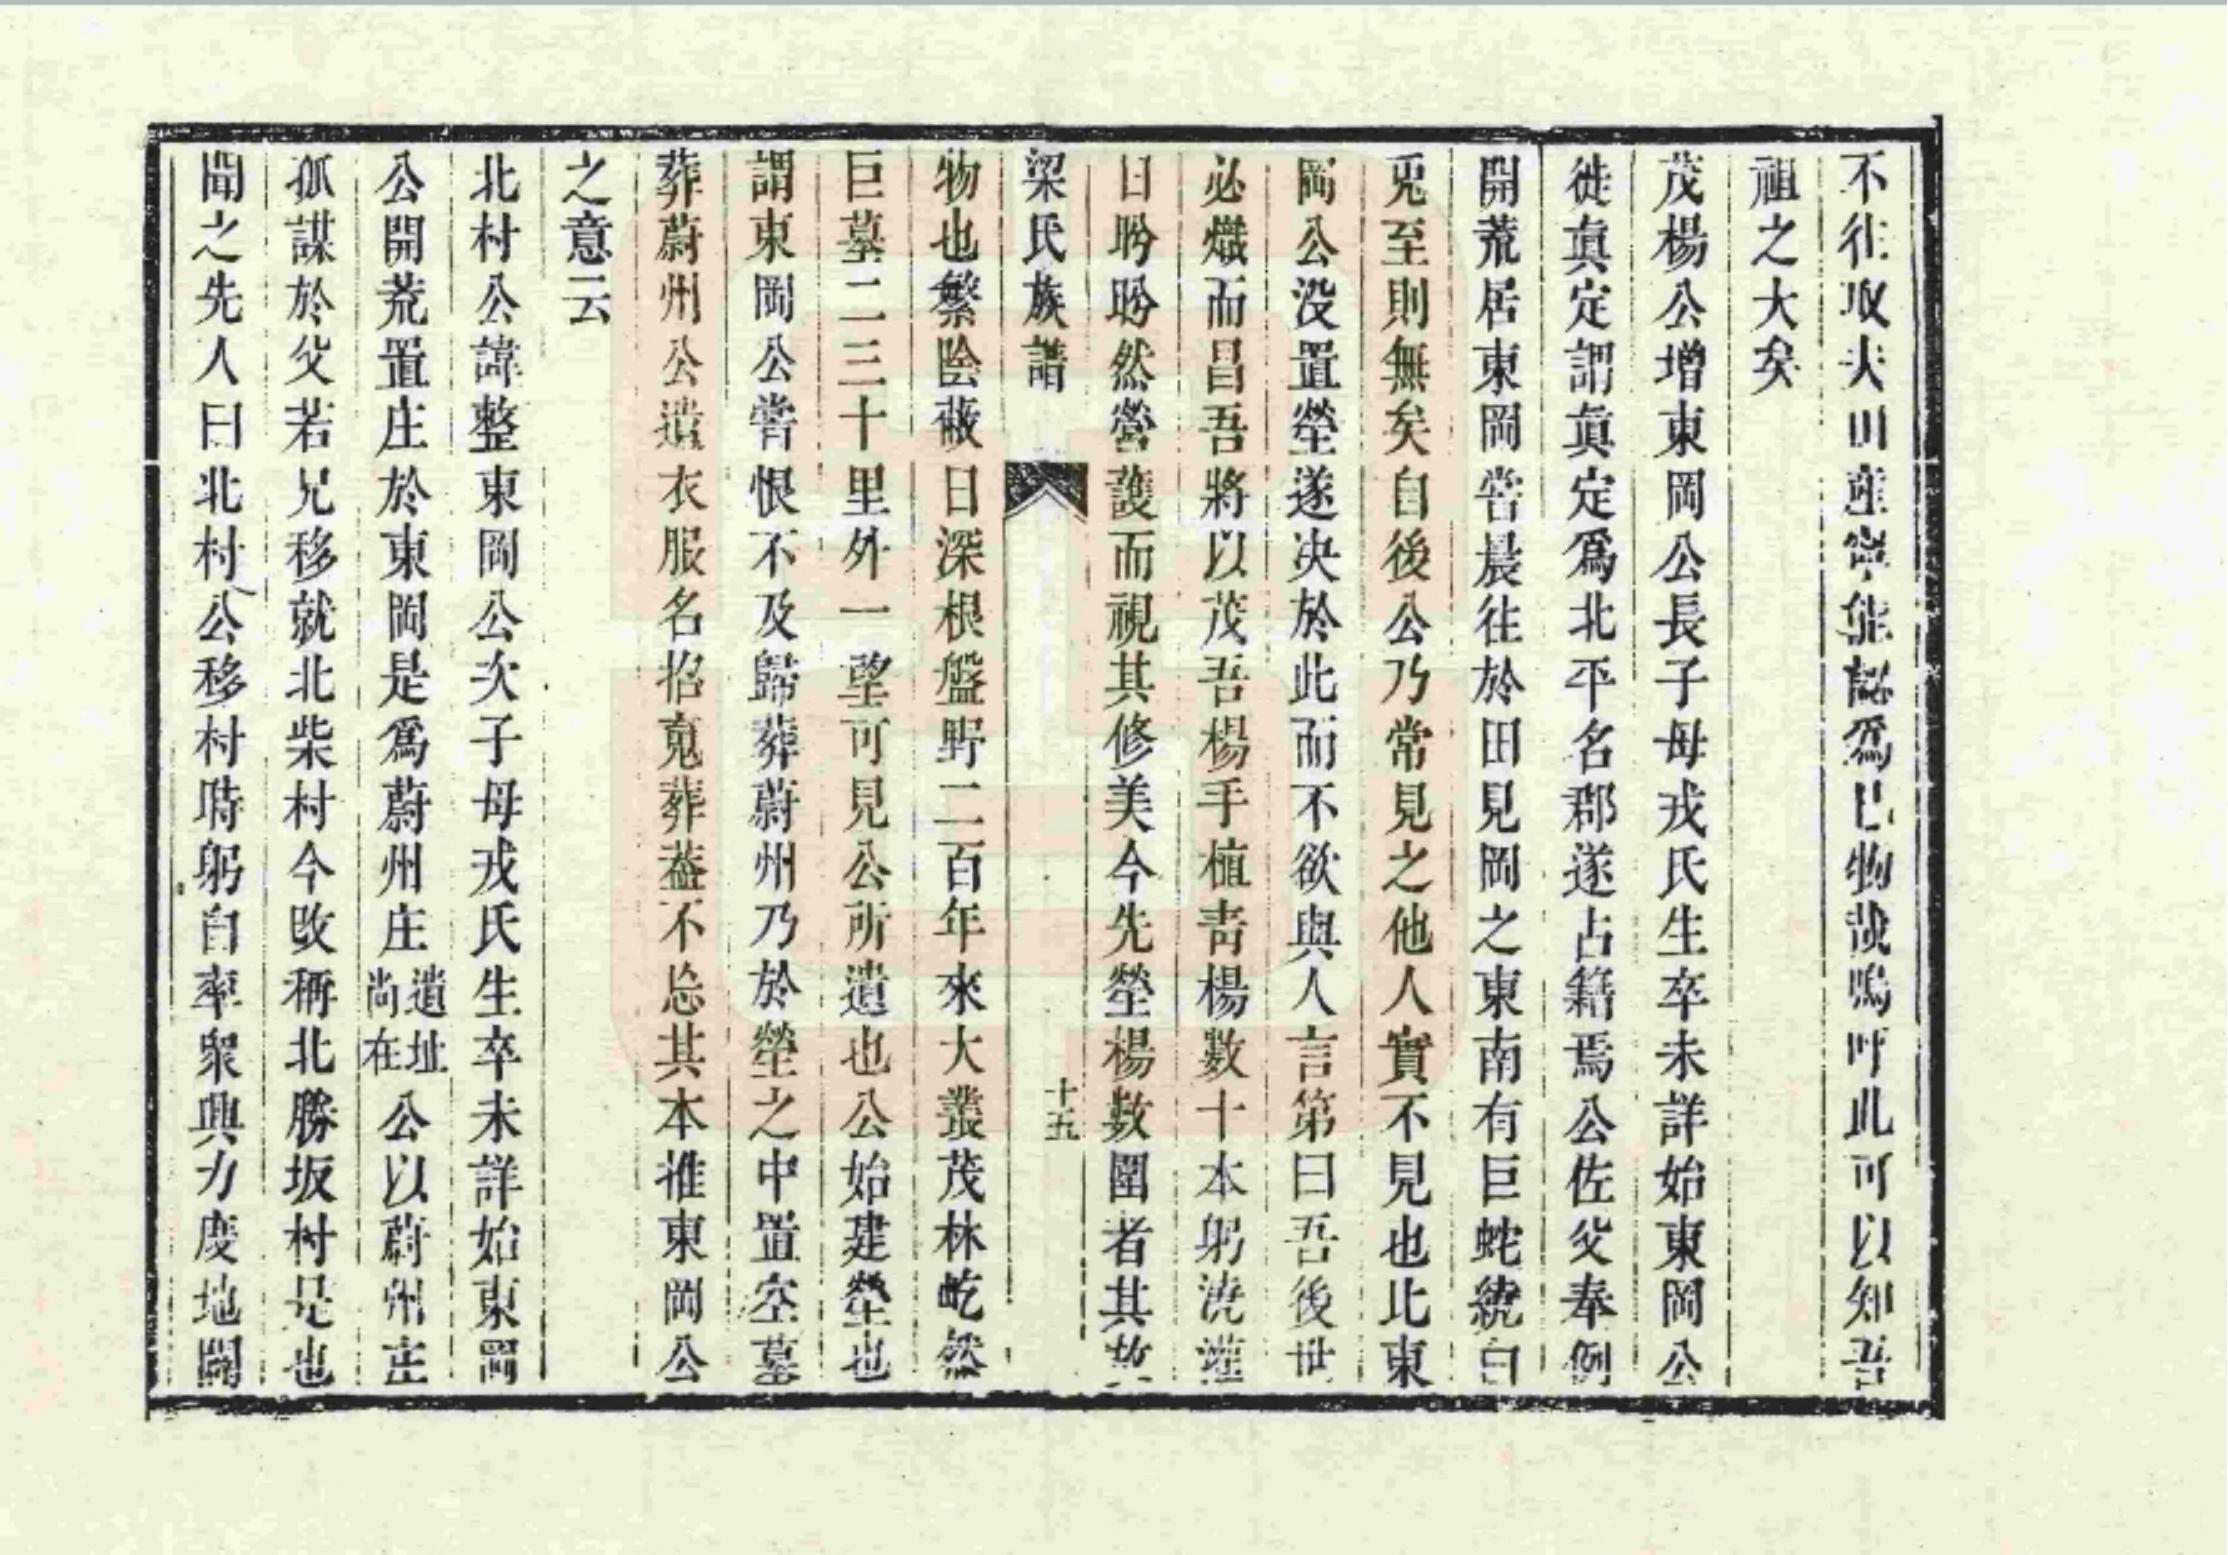 不往收夫田產寧能認爲己物哉嗚呼此可以知吾
祖之大矣
茂楊公增東岡公長子母戎氏生卒未詳始東岡公
徙眞定謂眞定爲北平名郡遂占籍焉公佐父奉例
開荒居東岡嘗晨往於田見岡之東南有巨蛇繞白
兎至則無矣自後公乃常見之他人實不見也比東
岡公没置塋遂决於此而不欲與人言第曰吾後世
必熾而昌吾將以茂吾楊手植靑楊數十本躬澆灌
日盼盼然營護而視其修美今先塋楊數圍者其故
梁氏族譜
十五
物也繁陰蔽日深根盤野二百年來大叢茂林屹然
巨墓二三十里外一望可見公所遺也公始建塋也
謂東岡公嘗恨不及歸葬蔚州乃於塋之中置空墓
葬蔚州公遺衣服名招䰟葬葢不忘其本推東岡公
之意云
北村公諱整東岡公次子母戎氏生卒未詳始東岡
公開荒置庄於東岡是爲蔚州庄遺址尚在公以蔚州庄
孤謀於父若兄移就北柴村今改稱北勝坂村是也
聞之先人曰北村公移村時躬自率衆興力度地闢